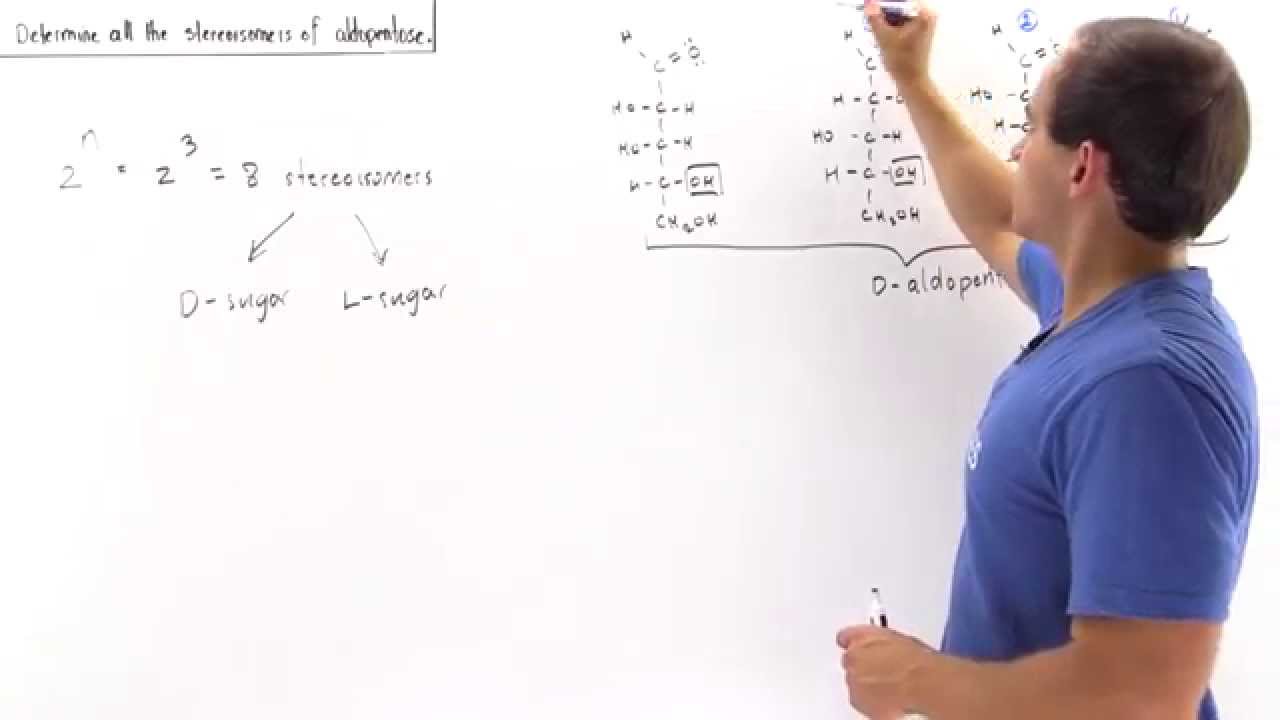 Determine all the stereoisomers of aldopentose.
2^n = 2^3 = 8 stereoisomers
D-sugar L-sugar
H
C=O
HO-C-H
HO-C-H
H-C-OH
CH2OH
H
C
H-C-
HO-C-H
H-C-OH
CH2OH
2
H
C=
HO-C
H-C
1
D-aldopent